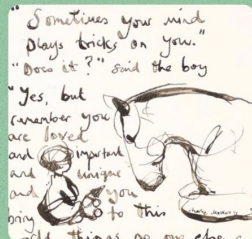 "Sometimes your mind
plays tricks on you."
"Does it?" said the boy
"Yes, but
remember you
are loved
and important
and unique
and you
bring to this
world things no one else